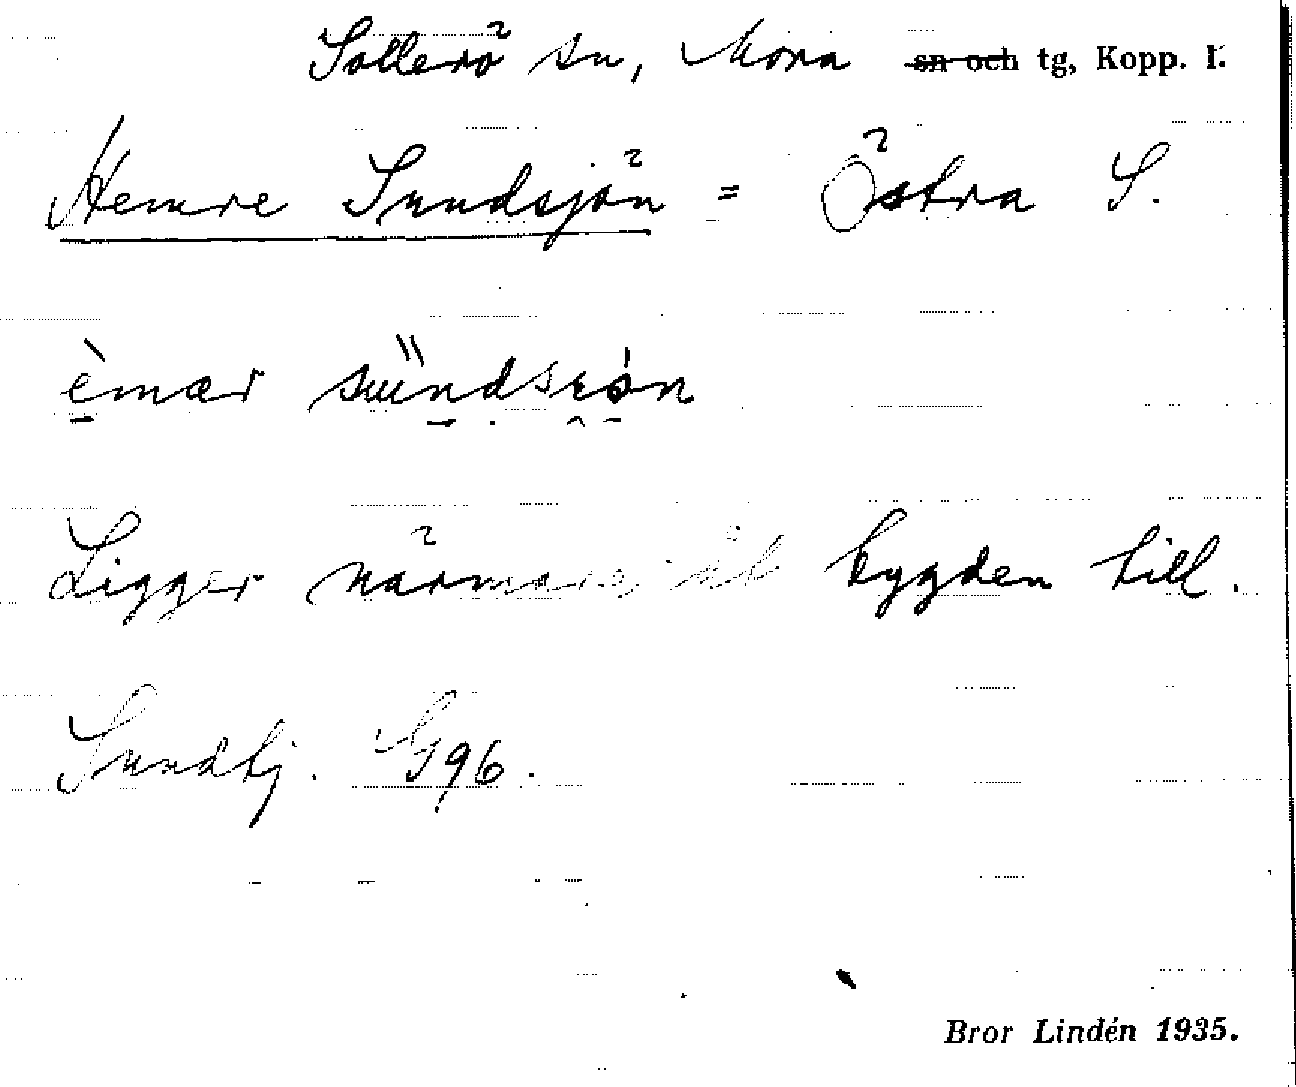 Sollerö sn, Mora sn och tg, Kopp. l.
Hemre Sundsjön = Östra S.
èmær
Ligger närmare åt bygden till.
Sundbj. G96.
Bror Lindén 1935.